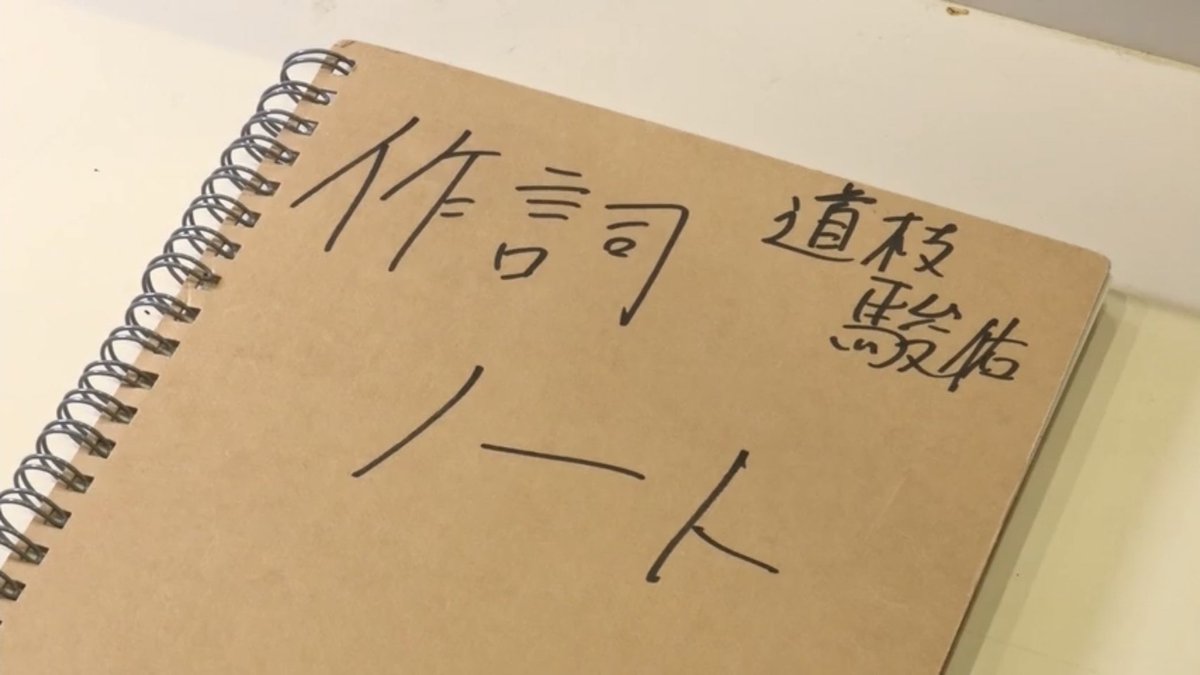 作詞
ノート
道枝
駿佑